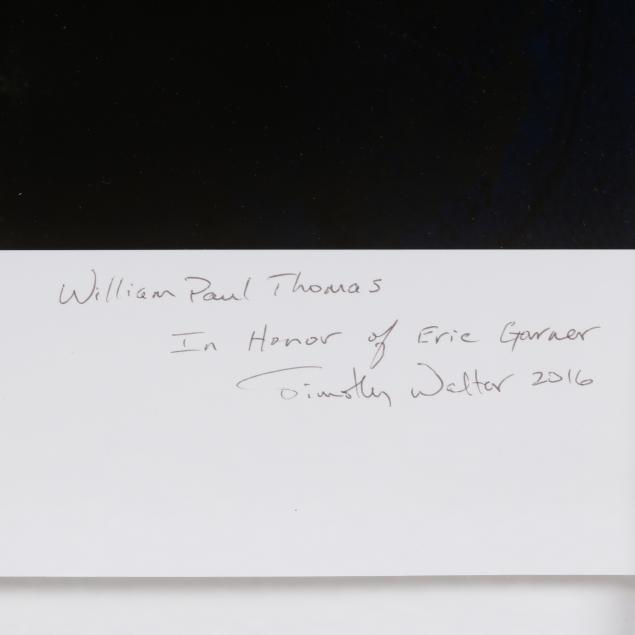 William Paul Thomas
In Honor of Eric Garner
Timothy Walter 2016